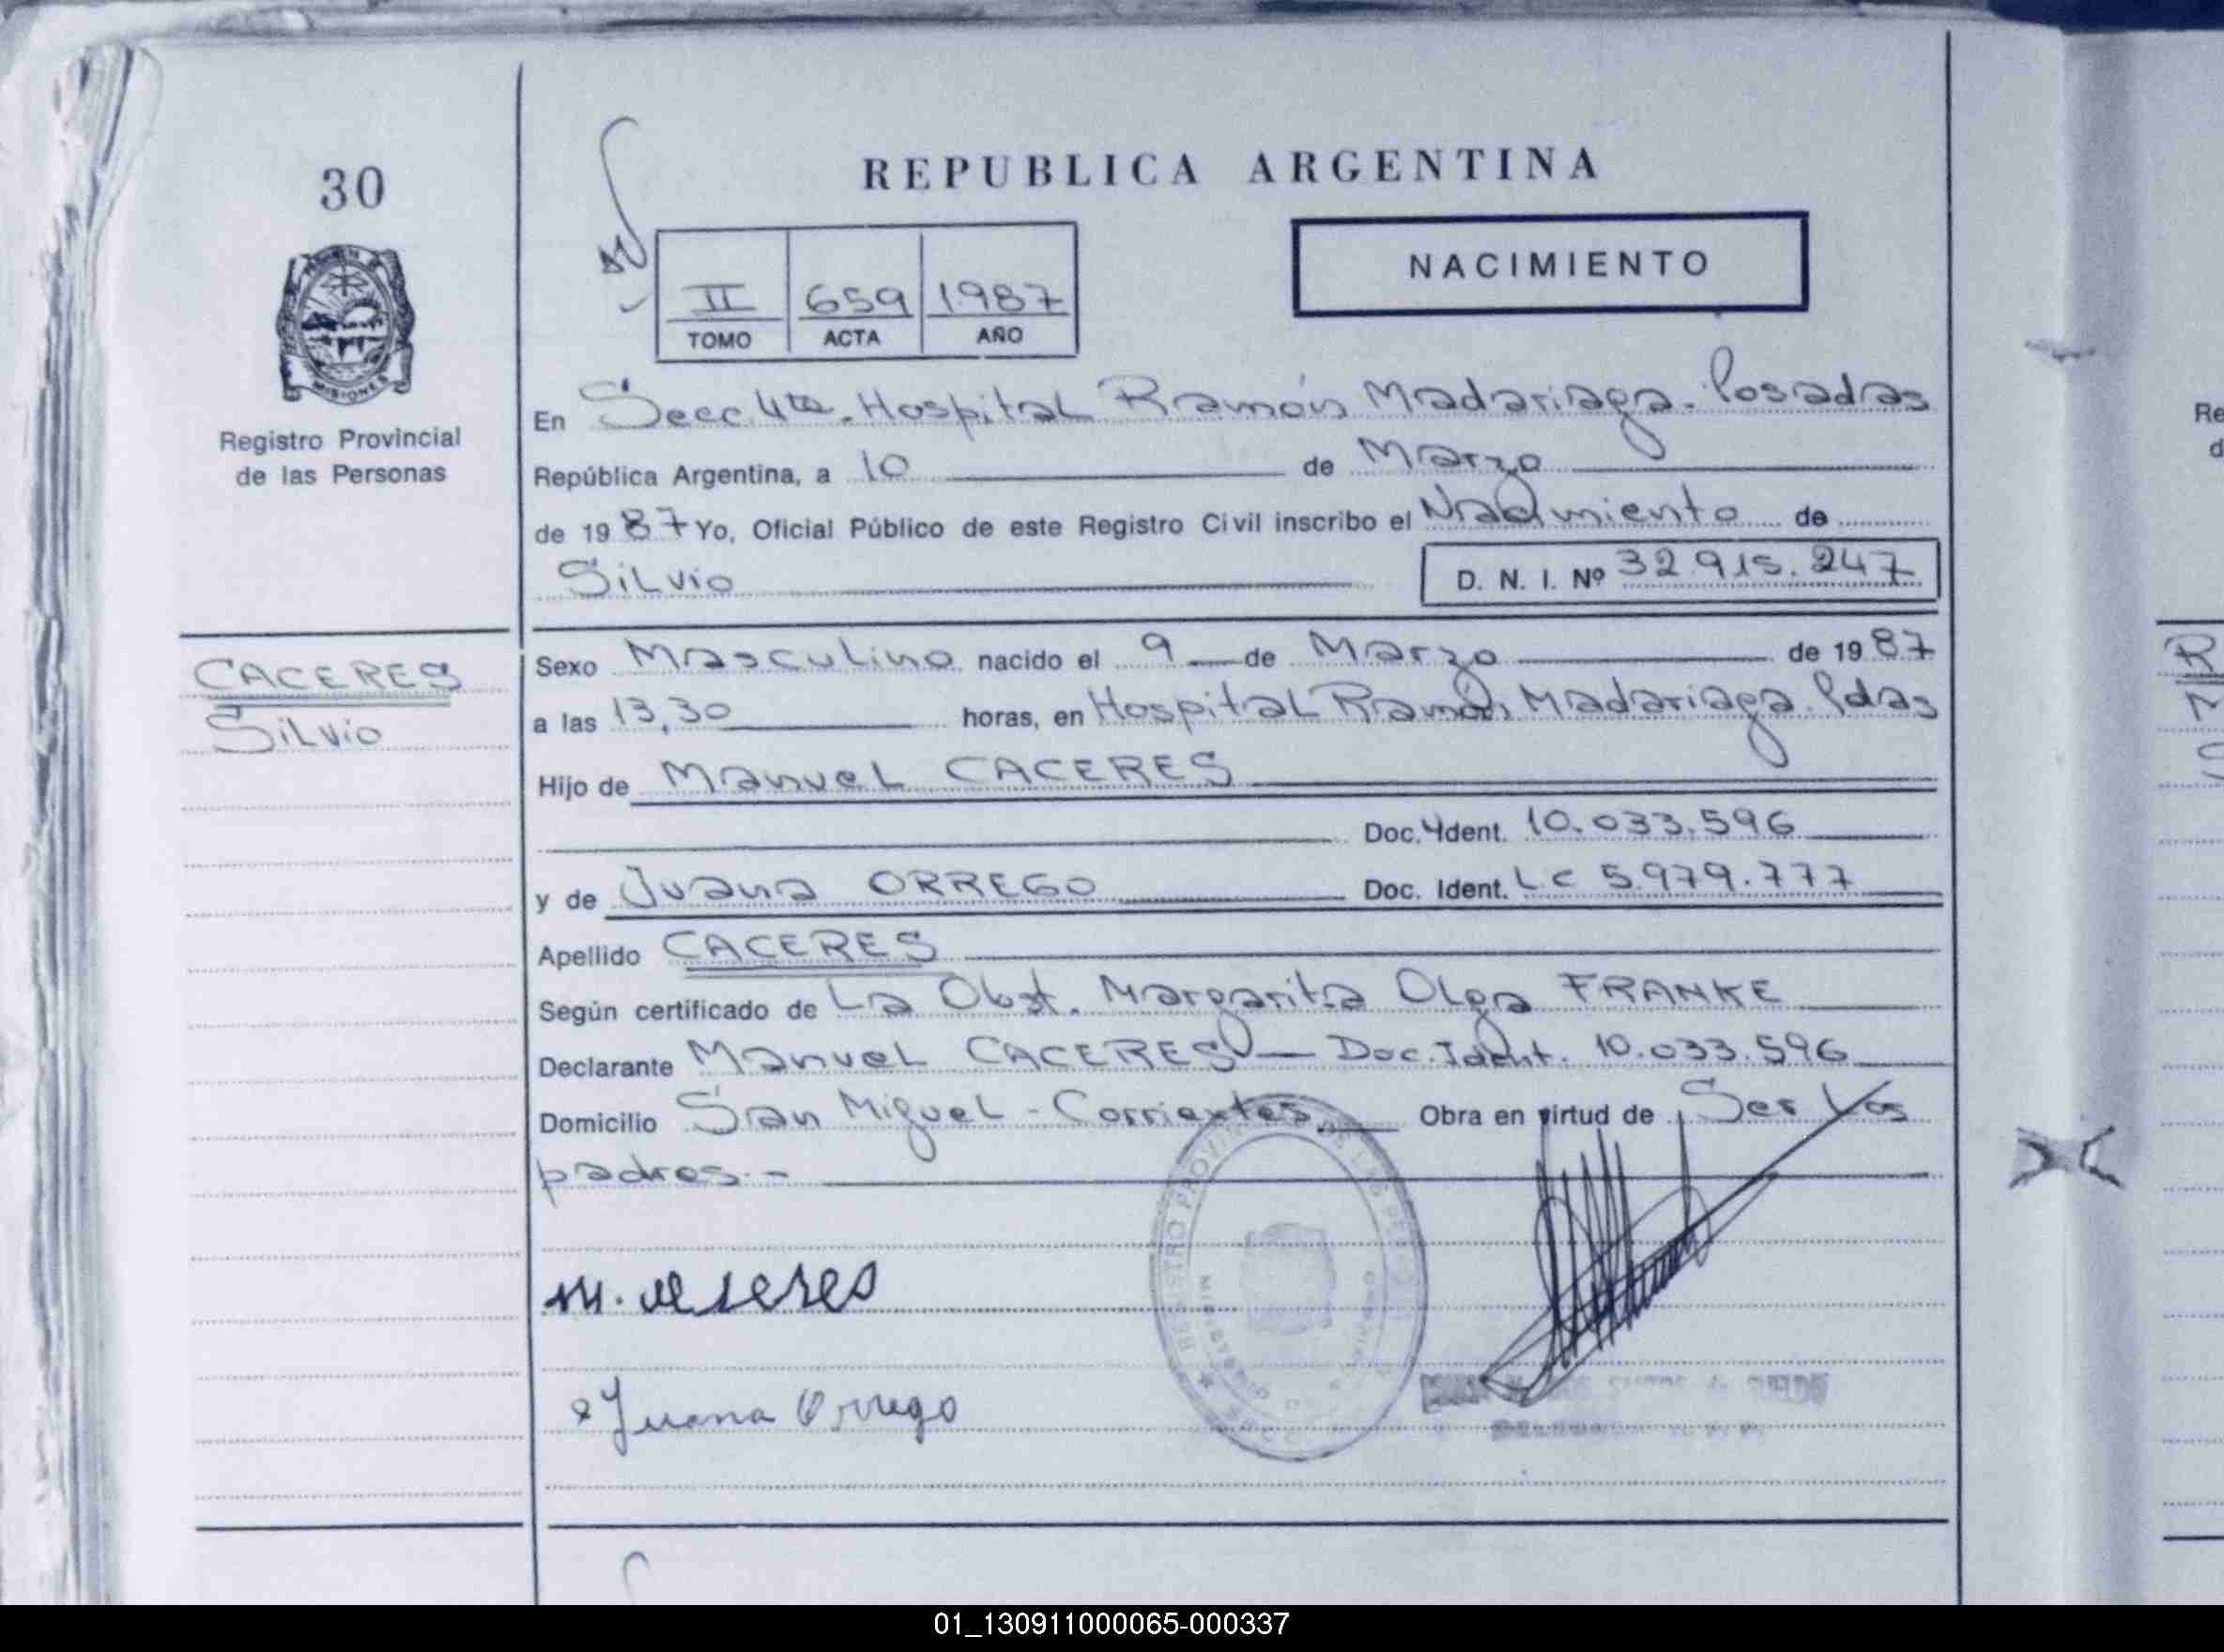 30
REPUBLICA ARGENTINA
NACIMIENTO
II 659 1987
TOMO ACTA AÑO
MISIONES
Registro Provincial
de las Personas
En Secc. 4ta. Hospital Ramón Madariaga. Posadas
República Argentina, a 10 de Marzo
de 1987 Yo, Oficial Público de este Registro Civil inscribo el Nacimiento de
Silvio D. N. I. Nº 32 915. 247
CACERES
Silvio
Sexo Masculino nacido el 9 de Marzo de 1987
a las 13,30 horas, en Hospital Ramón Madariaga. Pdas
Hijo de Manuel CACERES
Doc. Ident. 10.033.596
y de Juana ORREGO Doc. Ident. LC 5.979.777
Apellido CACERES
Según certificado de La Obst. Margarita Olga FRANKE
Declarante Manuel CACERES — Doc. Ident. 10.033.596
Domicilio San Miguel - Corrientes. Obra en virtud de Ser los
padres.-
REGISTRO PROVINCIAL DE LAS PERSONAS
Juana Orrego
01_130911000065-000337